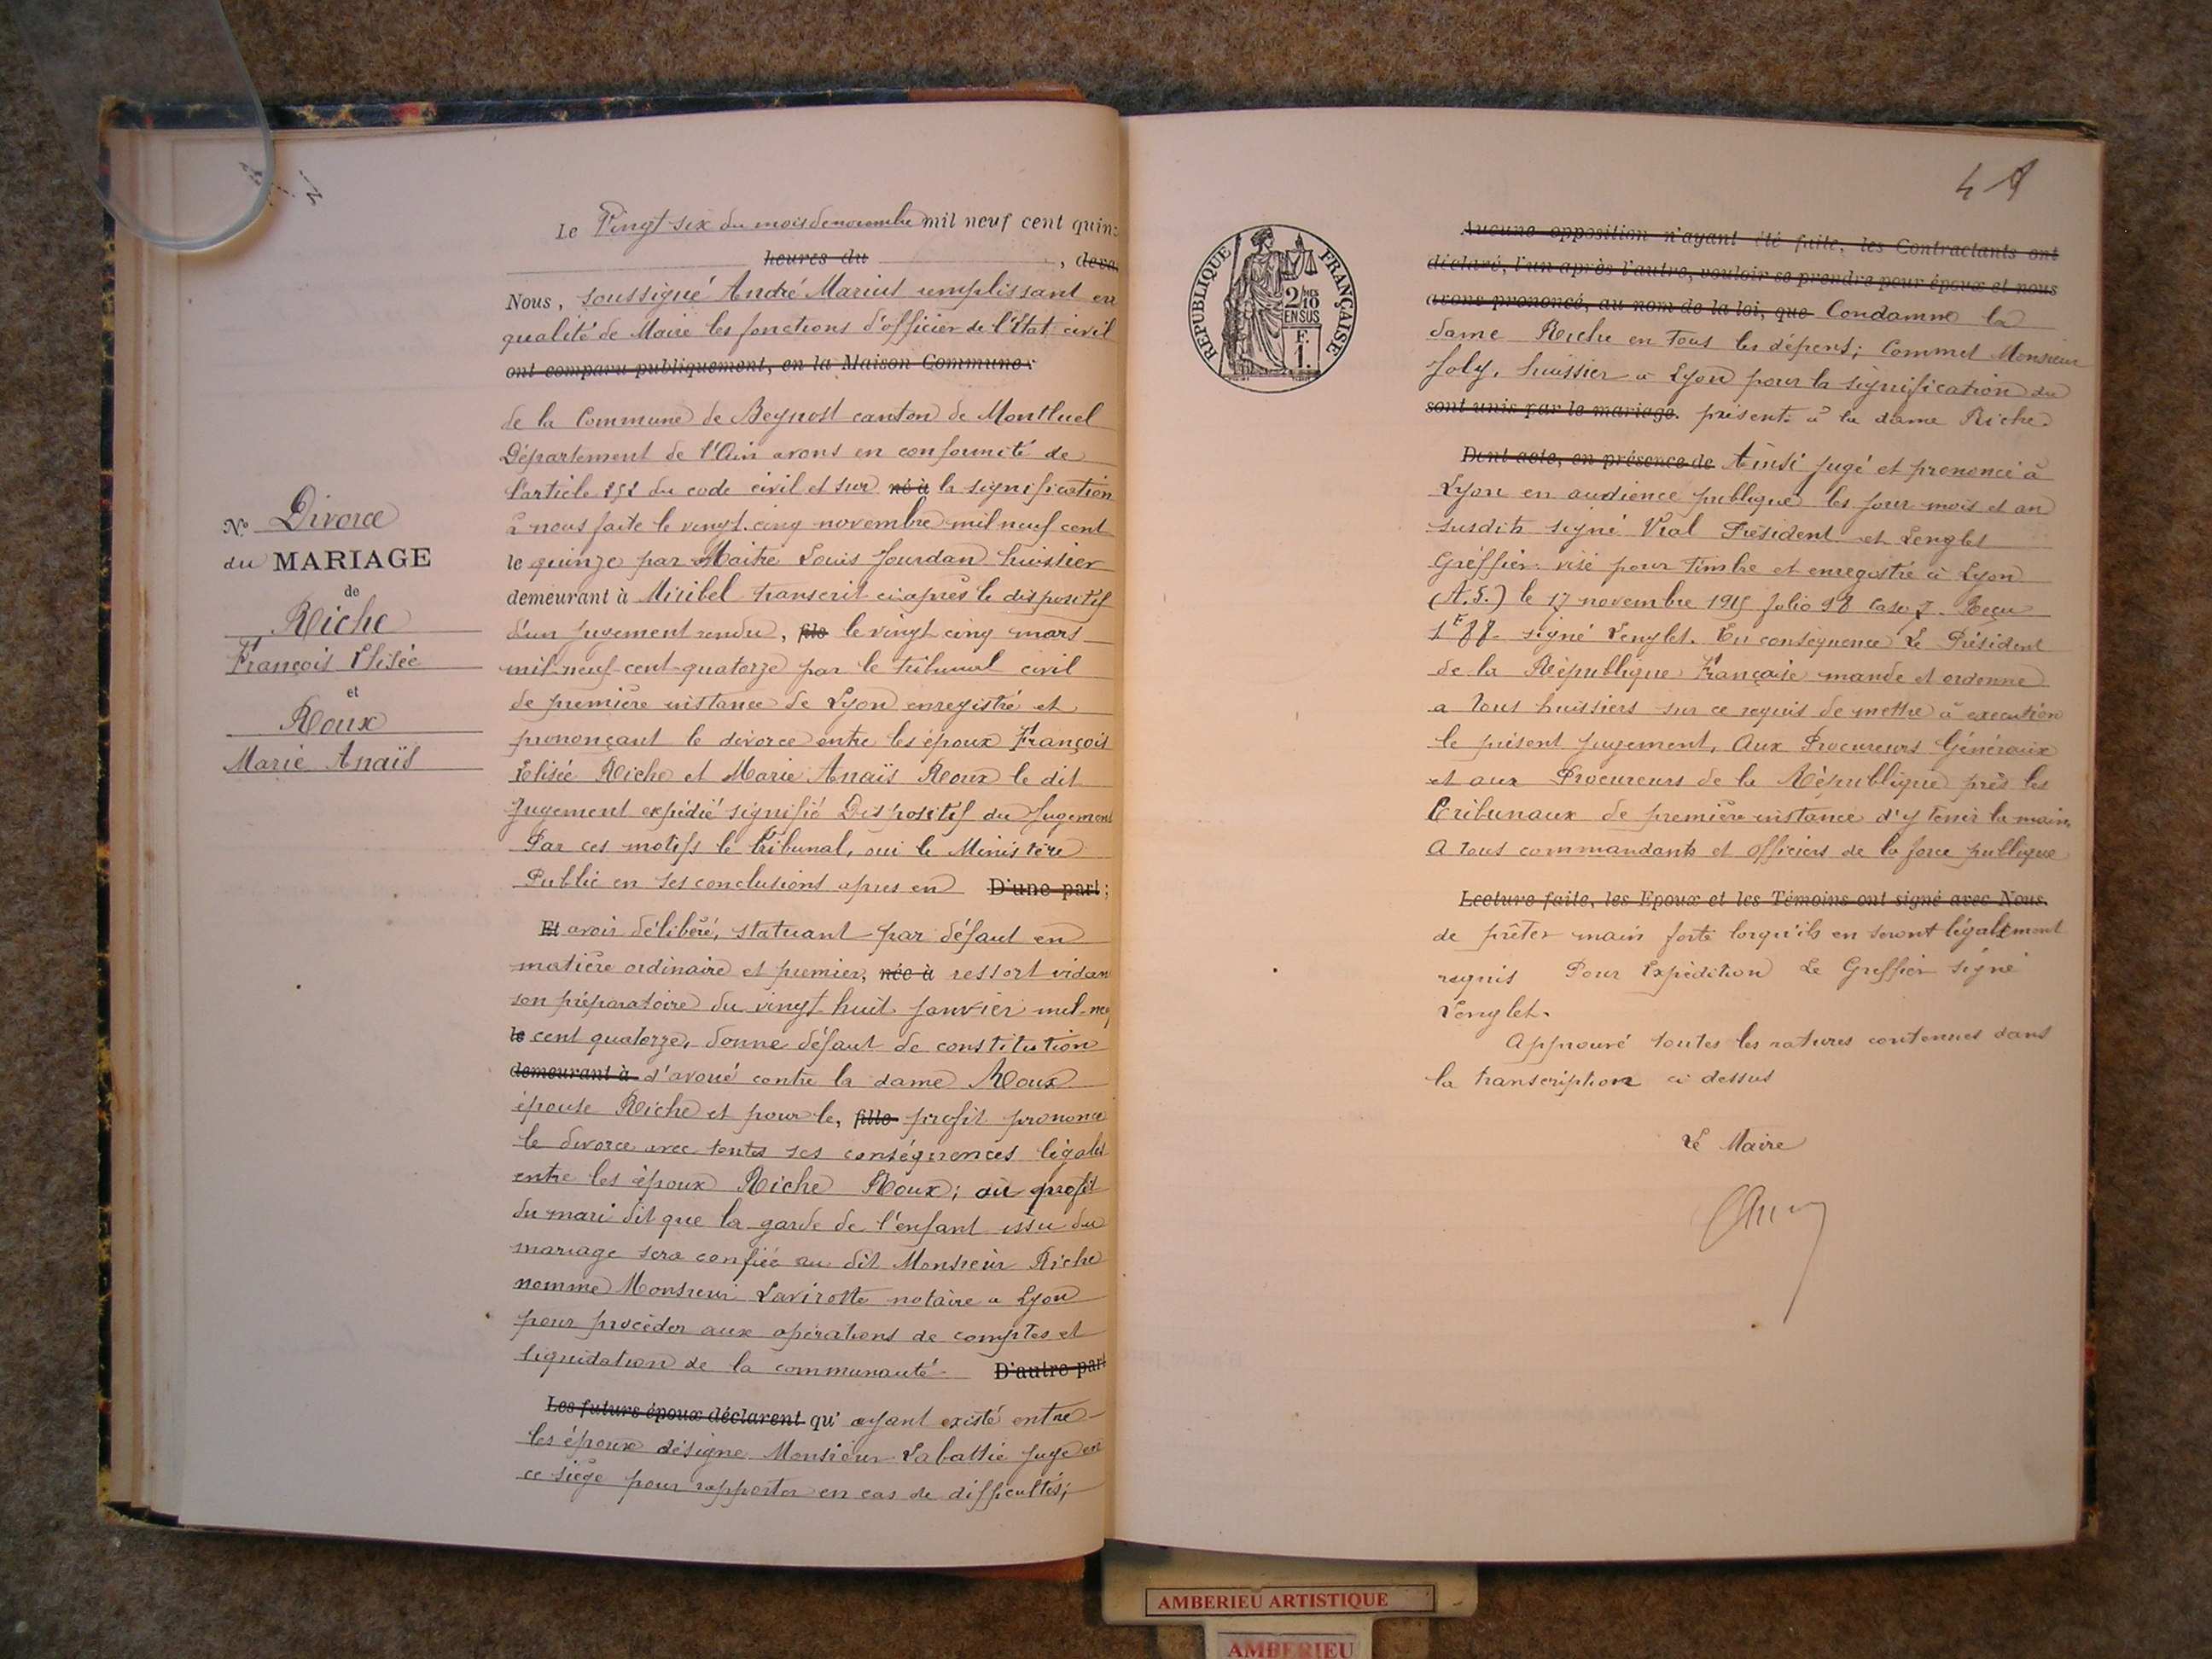 Le Vingt-six du mois de novembre mil neuf cent quin
heures du , deva
Nous, soussigné André Marius remplissant en
qualité de Maire les fonctions d'officier de l'Etat civil
ont comparu publiquement, en la Maison Commune:
de la Commune de Beynost canton de Montluel
Département de l'Ain avons en conformité de
l'article 252 du code civil et sur né à la signification
à nous faite le vingt-cinq novembre mil neuf cent
le quinze par Maitre Louis Jourdan huissier
demeurant à Miribel transcrit ci après le dispositif
d'un jugement rendu, fils le vingt cinq mars
mil-neuf-cent-quatorze par le tribunal civil
de première instance de Lyon enregistré et
prononçant le divorce entre les époux François
Elisée Riche et Marie Anaïs Roux le dit
jugement expédié signifié Dispositif du Jugement
Par ces motifs le tribunal, oui le Ministère
Public en ses conclusions apres en D'une part;
Et avoir délibéré, statuant par défaut en
matière ordinaire et premier, née à ressort vidan
son préparatoire du vingt huit janvier mil-neuf
le cent quatorze, donne défaut de constitution
demeurant à d'avoué contre la dame Roux
épouse Riche et pour le, fille profit prononce
le divorce avec toutes ses conséquences légales
entre les époux Riche Roux; au profit
du mari dit que la garde de l'enfant issu du
mariage sera confiée au dit Monsieur Riche
nomme Monsieur Lavirotte notaire a Lyon
pour procéder aux opérations de comptes et
liquidation de la communauté D'autre part
Les futurs époux déclarent qu' ayant existé entre
les époux désigne Monsieur Labattie juge en
ce siège pour rapporter en cas de difficultés;
N° Divorce
du MARIAGE
de
Riche
François Elisée
et
Roux
Marie Anaïs
RÉPUBLIQUE FRANÇAISE
2/10MES
EN SUS
F.
1.
Aucune opposition n'ayant été faite, les Contractants ont
déclaré, l'un après l'autre, vouloir se prendre pour époux et nous
avons prononcé, au nom de la loi, que Condamne la
dame Riche en tous les dépens; Commet Monsieur
Joly, huissier a Lyon pour la signification du
sont unis par le mariage. présent à la dame Riche
Dont acte, en présence de Ainsi jugé et prononcé à
Lyon en audience publique les jour mois et an
susdits signé Vial Président et Lenglet
Greffier. visé pour timbre et enregistré à Lyon
(A.S.) le 17 novembre 1915 folio 98 case 7. Reçu
signé Lenglet. En conséquence Le Président
de la République Française mande et ordonne
a tous huissiers sur ce requis de mettre à execution
le présent jugement, Aux Procureurs Généraux
et aux Procureurs de la République près les
tribunaux de première instance d'y tenir la main,
A tous commandants et officiers de la force publique
Lecture faite, les Epoux et les Témoins ont signé avec Nous.
de prêter main forte lorsqu'ils en seront légalement
requis Pour Expédition Le Greffier signé
Lenglet.
Approuvé toutes les ratures contenues dans
la transcription ci dessus
Le Maire
AMBERIEU ARTISTIQUE
AMBERIEU